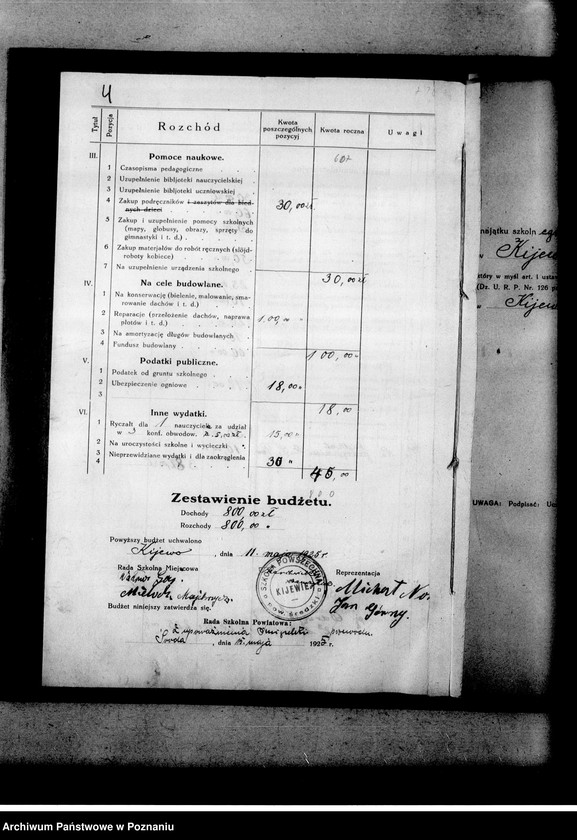 4
Tytuł
Pozycja
Rozchód
Kwota poszczególnych pozycyj
Kwota roczna
Uwagi
III. Pomoce naukowe.
1 Czasopisma pedagogiczne
2 Uzupełnienie bibljoteki nauczycielskiej
3 Uzupełnienie bibljoteki uczniowskiej
4 Zakup podręczników i zeszytów dla bied-
nych dzieci 30,00 zł
5 Zakup i uzupełnienie pomocy szkolnych
(mapy, globusy, obrazy, sprzęty do
gimnastyki i t. d.)
6 Zakup materjałów do robót ręcznych (slöjd-
roboty kobiece)
7 Na uzupełnienie urządzenia szkolnego
30,00 zł
IV. Na cele budowlane.
1 Na konserwację (bielenie, malowanie, sma-
rowanie dachów i t. d.)
2 Reparacje (przełożenie dachów, naprawa
płotów i t. d.) 100,00 "
3 Na amortyzację długów budowlanych
4 Fundusz budowlany
100,00 "
V. Podatki publiczne.
1 Podatek od gruntu szkolnego
2 Ubezpieczenie ogniowe 18,00 "
3
18,00
VI. Inne wydatki.
1 Ryczałt dla 1 nauczyciela za udział
w 3 konf. obwodow. à 5,00 zł. 15,00 "
2 Na uroczystości szkolne i wycieczki "
3 Nieprzewidziane wydatki i dla zaokrąglenia 30 "
4
45,00
Zestawienie budżetu.
Dochody 800,00 zł
Rozchody 800,00 "
Powyższy budżet uchwalono
Kijewo, dnia 11. maja 1925 r
Rada Szkolna Miejscowa
Reprezentacja
SZKOŁA POWSZECHNA
KIJEWIE
pow. Średzki
Michał
Jan Górny.
Budżet niniejszy zatwierdza się.
Rada Szkolna Powiatowa:
Z upoważnienia
Środa, dnia maja 1925 r.
majątku szkoln
Kijew
który w myśl art. 1 ustaw
(Dz. U. R. P. Nr. 126 p
Kijew
UWAGA: Podpisać:
Archiwum Państwowe w Poznaniu